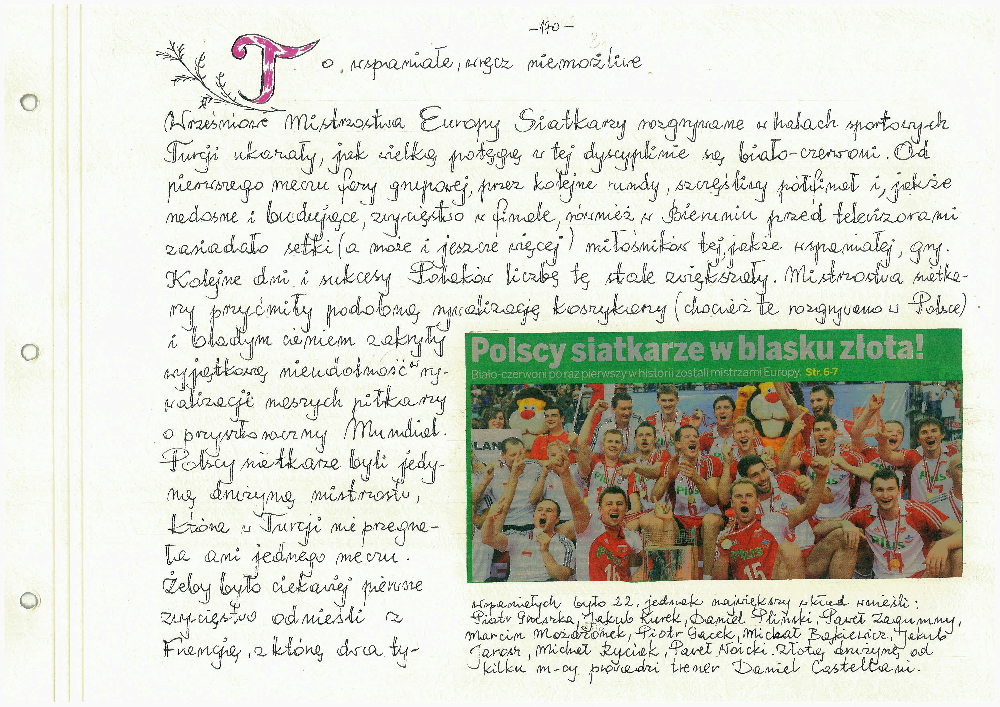 -170-
To, wspaniałe, wręcz niemożliwe
Wrześniowe Mistrzostwa Europy Siatkarzy rozgrywane w halach sportowych
Turcji ukazały, jak wielką potęgą w tej dyscyplinie są biało-czerwoni. Od
pierwszego meczu fazy grupowej, przez kolejne rundy, szczęśliwy półfinał i, jakże
radosne i budujące, zwycięstwo w finale, również w Bieruniu przed telewizorami
zasiadało setki (a może i jeszcze więcej) miłośników tej, jakże wspaniałej, gry.
Kolejne dni i sukcesy Polaków liczbę tę stale zwiększały. Mistrzostwa siatka-
rzy przyćmiły podobną rywalizację koszykarzy (chociaż te rozgrywano w Polsce)
i bladym cieniem zakryły
wyjątkową nieudolność w ry-
walizacji naszych piłkarzy
o przyszłoroczny Mundial.
Polscy siatkarze byli jedy-
ną drużyną mistrzostw,
która w Turcji nie przegra-
ła ani jednego meczu.
Żeby było ciekawiej pierwsze
zwycięstwo odnieśli z
Francją, z którą dwa ty-
Polscy siatkarze w blasku złota!
Biało-czerwoni po raz pierwszy w historii zostali mistrzami Europy. Str. 6-7
LAN
PlUS
6
PlUS
16
PlUS
15
PlUS
13
wspaniałych było 22, jednak największy wkład wnieśli:
Piotr Gruszka, Jakub Kurek, Daniel Pliński, Paweł Zagumny,
Marcin Możdżonek, Piotr Gacek, Michał Bąkiewicz, Jakub
Jarosz, Michał Ryciak, Paweł Noicki. Złotą drużynę od
kilku m-cy prowadzi trener Daniel Castellani.